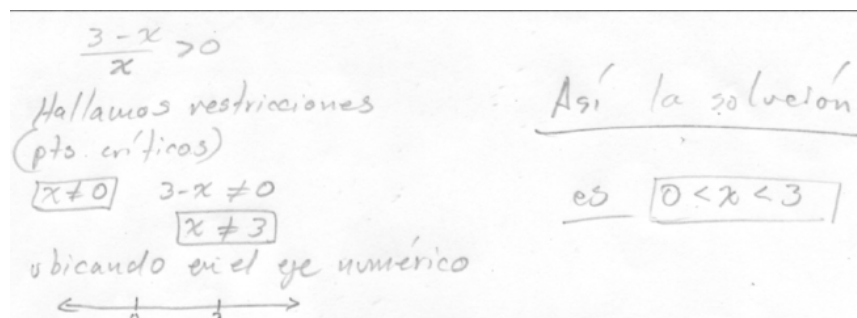 3 - x
x
> 0
Hallamos restricciones
(pts. críticos)
x ≠ 0   3 - x ≠ 0
x ≠ 3
ubicando en el eje numérico
Así la solución
es 0 < x < 3